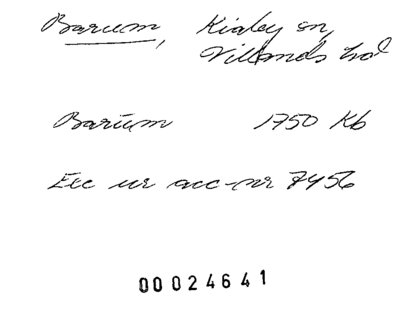 Barum, Kiaby sn,
Villands hd
Barum 1750 Kb
Exc ur acc-nr 7456
00024641